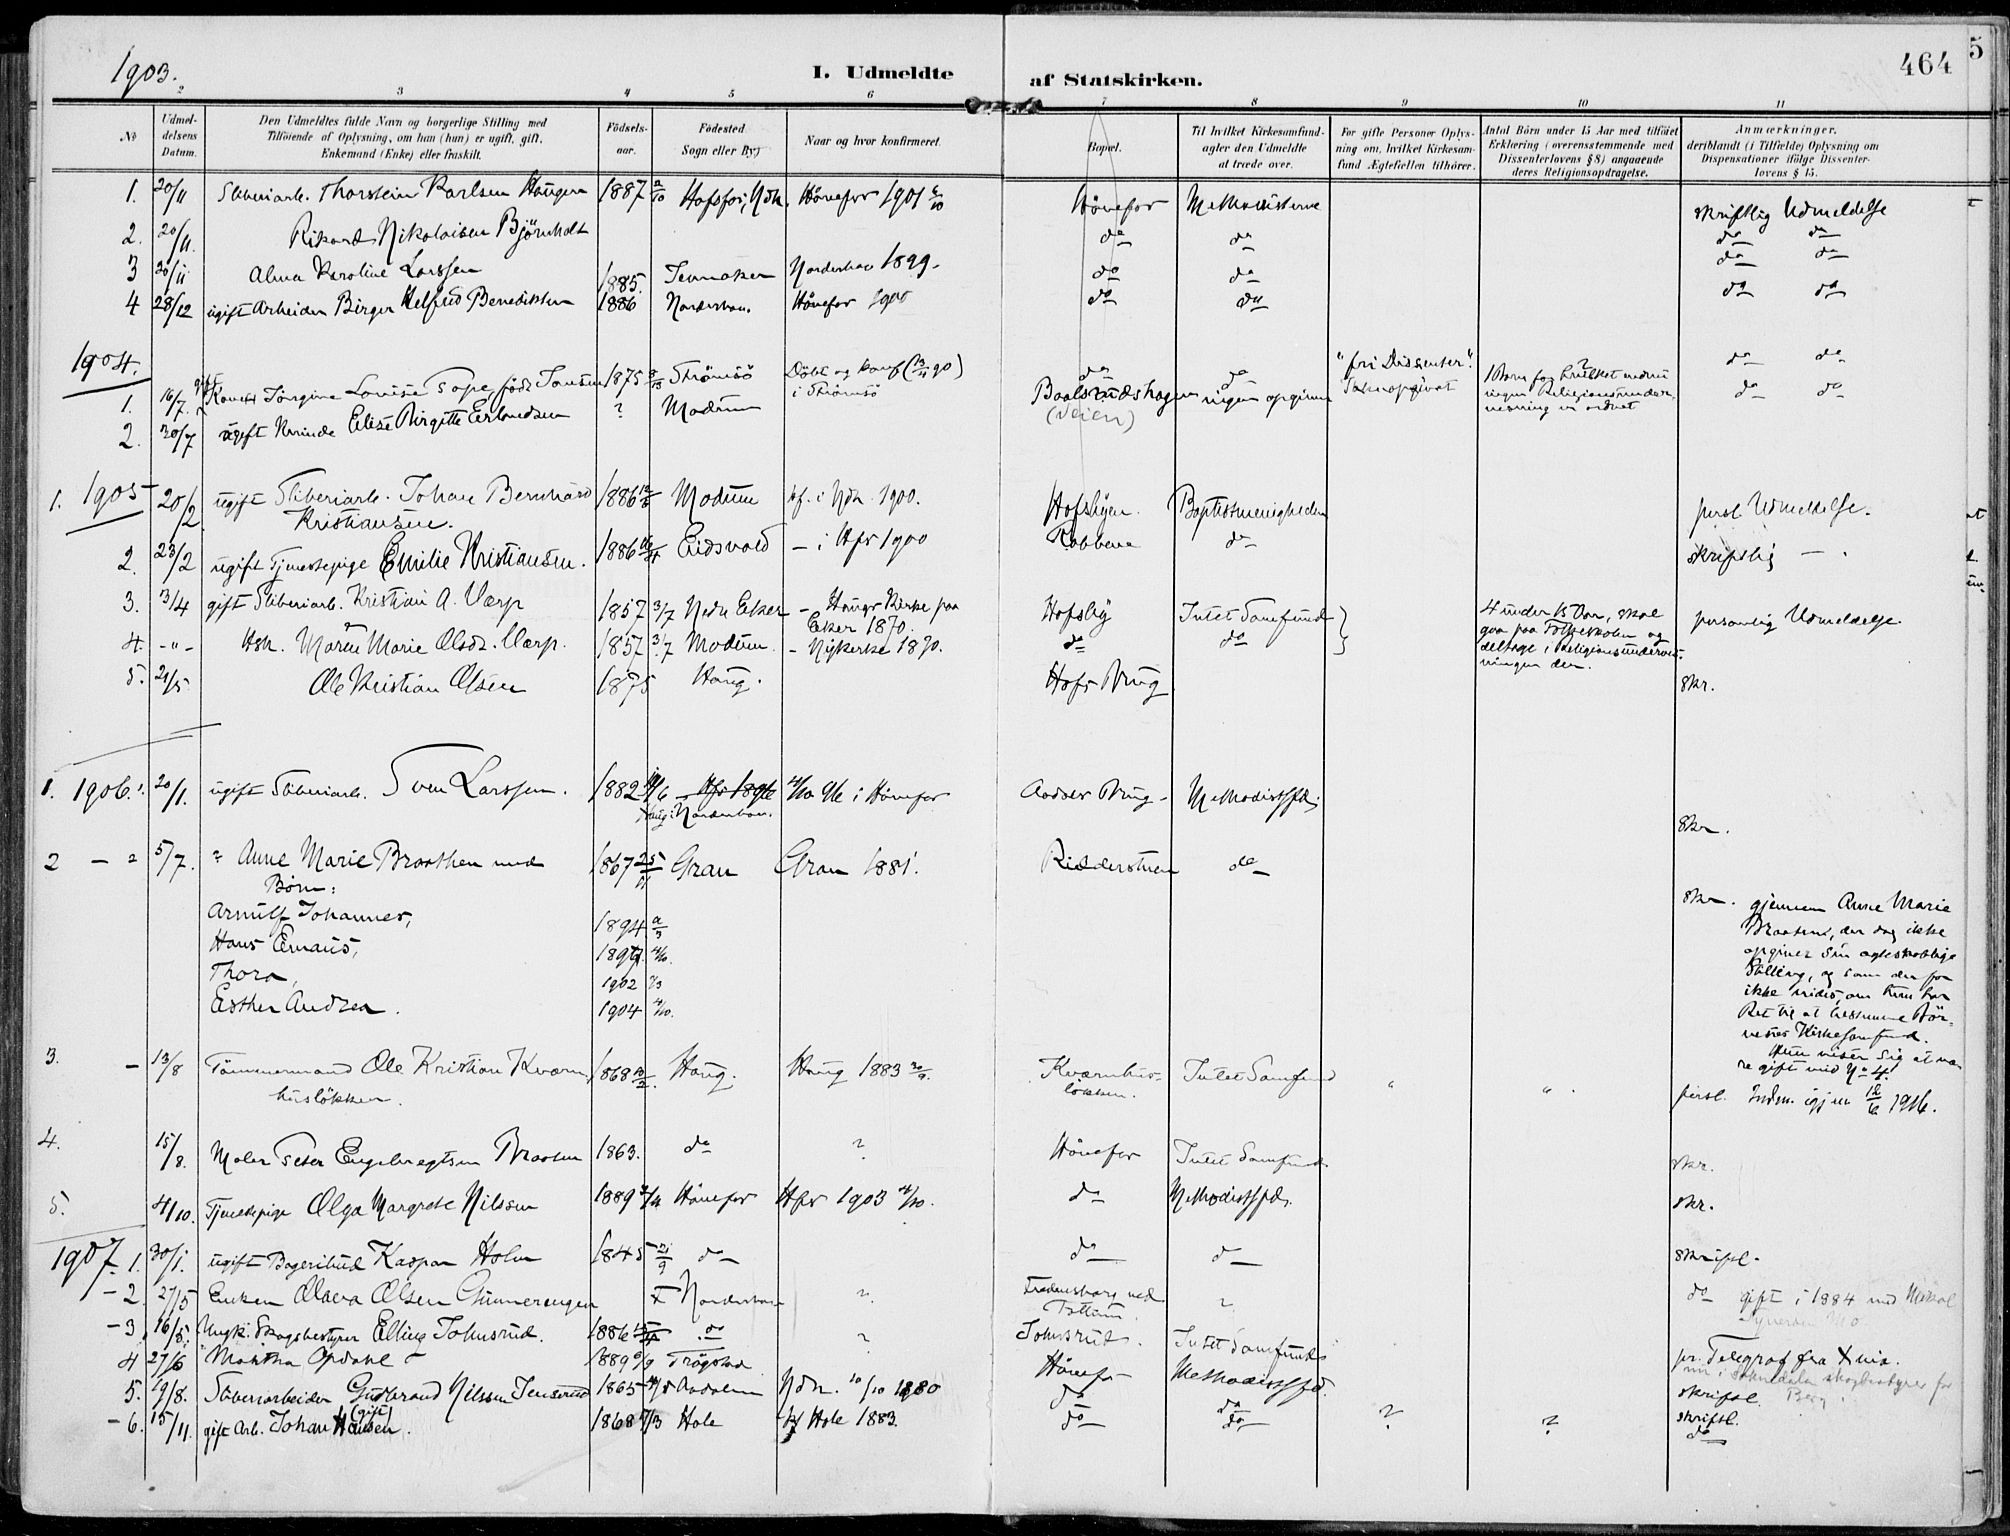 1903.
I. Udmeldte af Statskirken.
464
5
2 3 4 5 6 7 8 9 10 11
№
Udmeldelsens Datum.
Den Udmeldtes fulde Navn og borgerlige Stilling med Tilföiende af Oplysning, om han (hun) er ugift, gift, Enkemand (Enke) eller fraskilt.
Födselsaar.
Födested Sogn eller By.)
Naar og hvor konfirmeret.
Bopæl.
Til hvilket Kirkesamfund agter den Udmeldte at træde over.
For gifte Personer Oplysning om, hvilket Kirkesamfund Ægtefællen tilhörer.
Antal Börn under 15 Aar med tilföiet Erklæring (overensstemmende med Dissenterlovens § 8) angaaende deres Religionsopdragelse.
Anmærkninger, deriblandt (i Tilfælde) Oplysning om Dispensationer ifölge Dissenterlovens § 15.
1. 20/11 Sliberiarb. Thorstein Karlsen Haugen 1887 Hofsfos, Ndh. Hönefos 1901 Hönefos Methodisterne skriftlig Udmeldelse
2. 20/11. Rikard Nikolaisen Björnholt do do do do
3 20/11 Alma Karoline Larssen 1885. Jevnaker Norderhov 1899. do do do do
4 28/12 ugift Arbeider Birger Helfred Benediktsen 1886 Norderhov. Hönefos 1900 do do do do
1904.
1. 16/7. Jörgine Lovise Tope födt Jansen 1875 Strömsö Döbt og konf i Strömsö do do "fri Dissenter". do do
2. 30/7 ugift Kvinde Elise Birgitte Erlandsen ? Modum Baalsrudshagen (Veien) ingen opgiven do do
1. 1905 20/2 ugift Sliberiarb. Johan Bernhard Kristiansen. 1886 Modum kf. i Ndh. 1900. Hofsbyen. Baptistmenigheden persl Udmeldelse.
2. 23/2 ugift Tjenestepige Emilie Kristiansen. 1886 Eidsvold – i Hfs 1900 Robbene do skriftlig –
3. 13/4 gift Sliberiarb. Kristian A. Værp 1857 3/7 Nedre Eker – Haugs Kirke paa Eker 1870. Hofsby Intet Samfund 4 under 15 Aar, skal gaa paa Folkeskolen og deltage i Religionsundervisningen der. personlig Udmeldelse.
4. -"- Hsr. Maren Marie Olsdr. Værp. 1857 Modum – Nykirke 1870. do do
5. 21/5 Ole Kristian Olsen 1875 Haug. Hofs Brug skr.
1. 1906. 20/1. ugift Sliberiarb. Sven Larssen. 1882 Haug i Norderhov. 4/10 96 i Hönefos Aadals Brug Methodistsfd. skr.
2 – 5/7. ? Anne Marie Braathen med Börn: 1867 Gran Gran 1881. Ridderstuen do skr.
Arnulf Johannes, 1894
Hans Emaus, 1897
Thora, 1902
Esther Andrea. 1904 4/10.
gjennem Anne Marie Braaten, der dog ikke opgiver sin ægteskablige Stilling, og som der for ikke vides, om hun har Ret til at bestemme Börnenes Kirkesamfund. Hun viser sig at være gift med No 4.
3. – 13/8 Tömmermand Ole Kristian Kværnhuslökken. 1868 Haug. Haug 1883 30/9. Kværnhuslökken. Intet Samfund " " persl. Indm. igjen 1916.
4. 15/8. Maler Peter Engebregtsen Braaten 1863. do ? Hönefos Intet Samfund skr.
5. 4/10. Tjenestepige Olga Margrete Nilssen 1889 Hönefos Hfs 1903 4/10. do Methodistsfd. skr.
1907. 1. 30/1. ugift Bageribud Kaspar Holm 1845 do do do skriftl.
– 2. 27/5 Enken Olava Olsen Gunnerengen Norderhov ? Fredensborg ved Tottum ? do gift i 1884 med Mikal
– 3 16/8. Ungk. Skogsbestyrer Elling Johnsrud. 1886 do ? Johnsrud. Intet Samfund
4 27/6 Martha Opdahl 1889 Trögstad Hönefos Methodistsfd. pr. Telegraf fra Xnia.
5. 19/8. Sliberiarbeider Gudbrand Nilssen Jensrud 1865 Aadalen Ndh. 10/10 1880 do do skriftl.
– 6. 15/11. gift Arb. Johan Hansen. 1868 Hole kf Hole 1883. do do ? ? skriftl. do